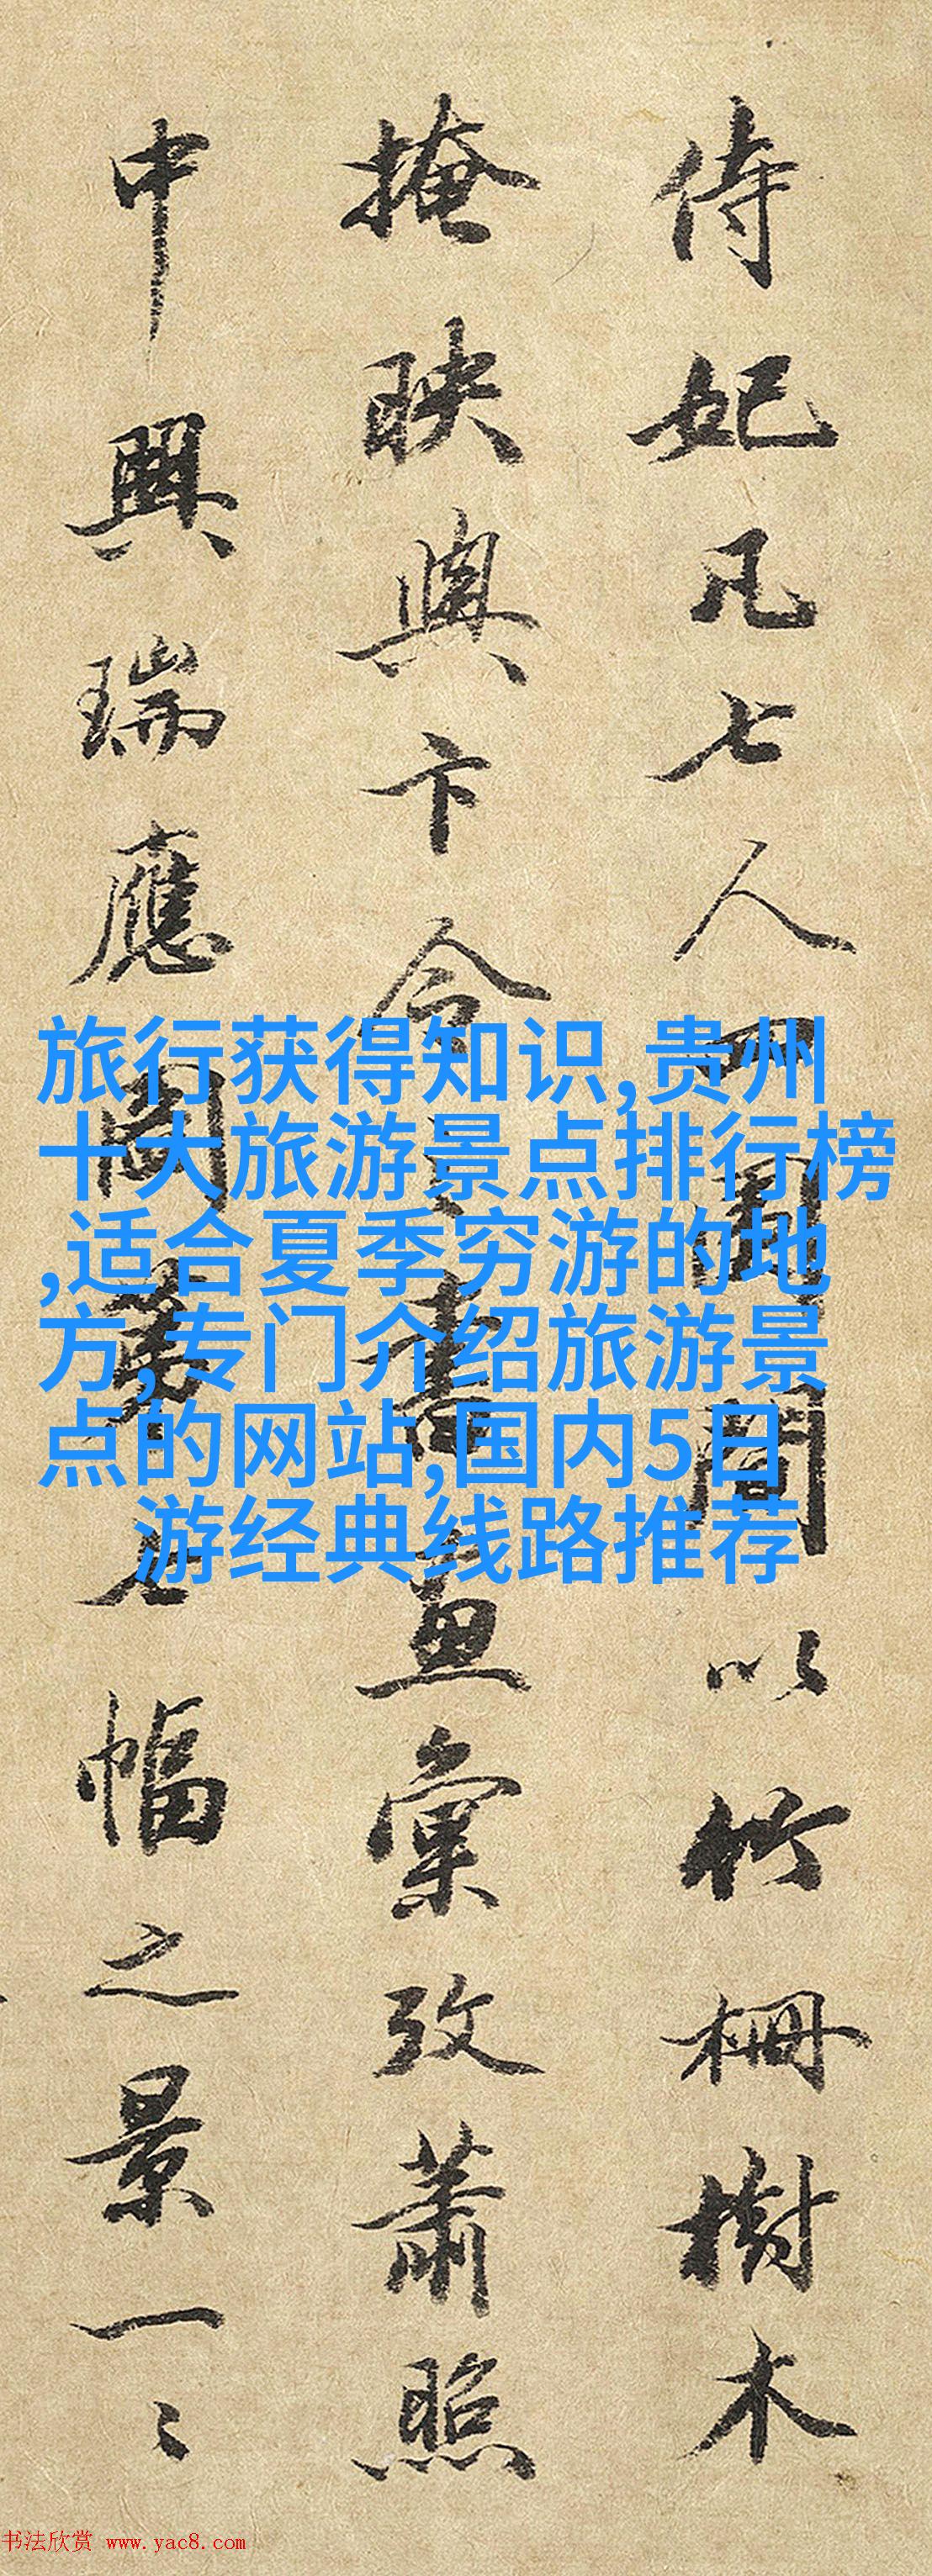 侍妃凡七人四圍間以竹柵樹木
掩映與卞令書畫彙攷蕭照
中興瑞應圖第七幅之景一〻
旅行获得知识,贵州
十大旅游景点排行榜
,适合夏季穷游的地
方,专门介绍旅游景
点的网站,国内5日
游经典线路推荐
书法欣赏 www.yac8.com